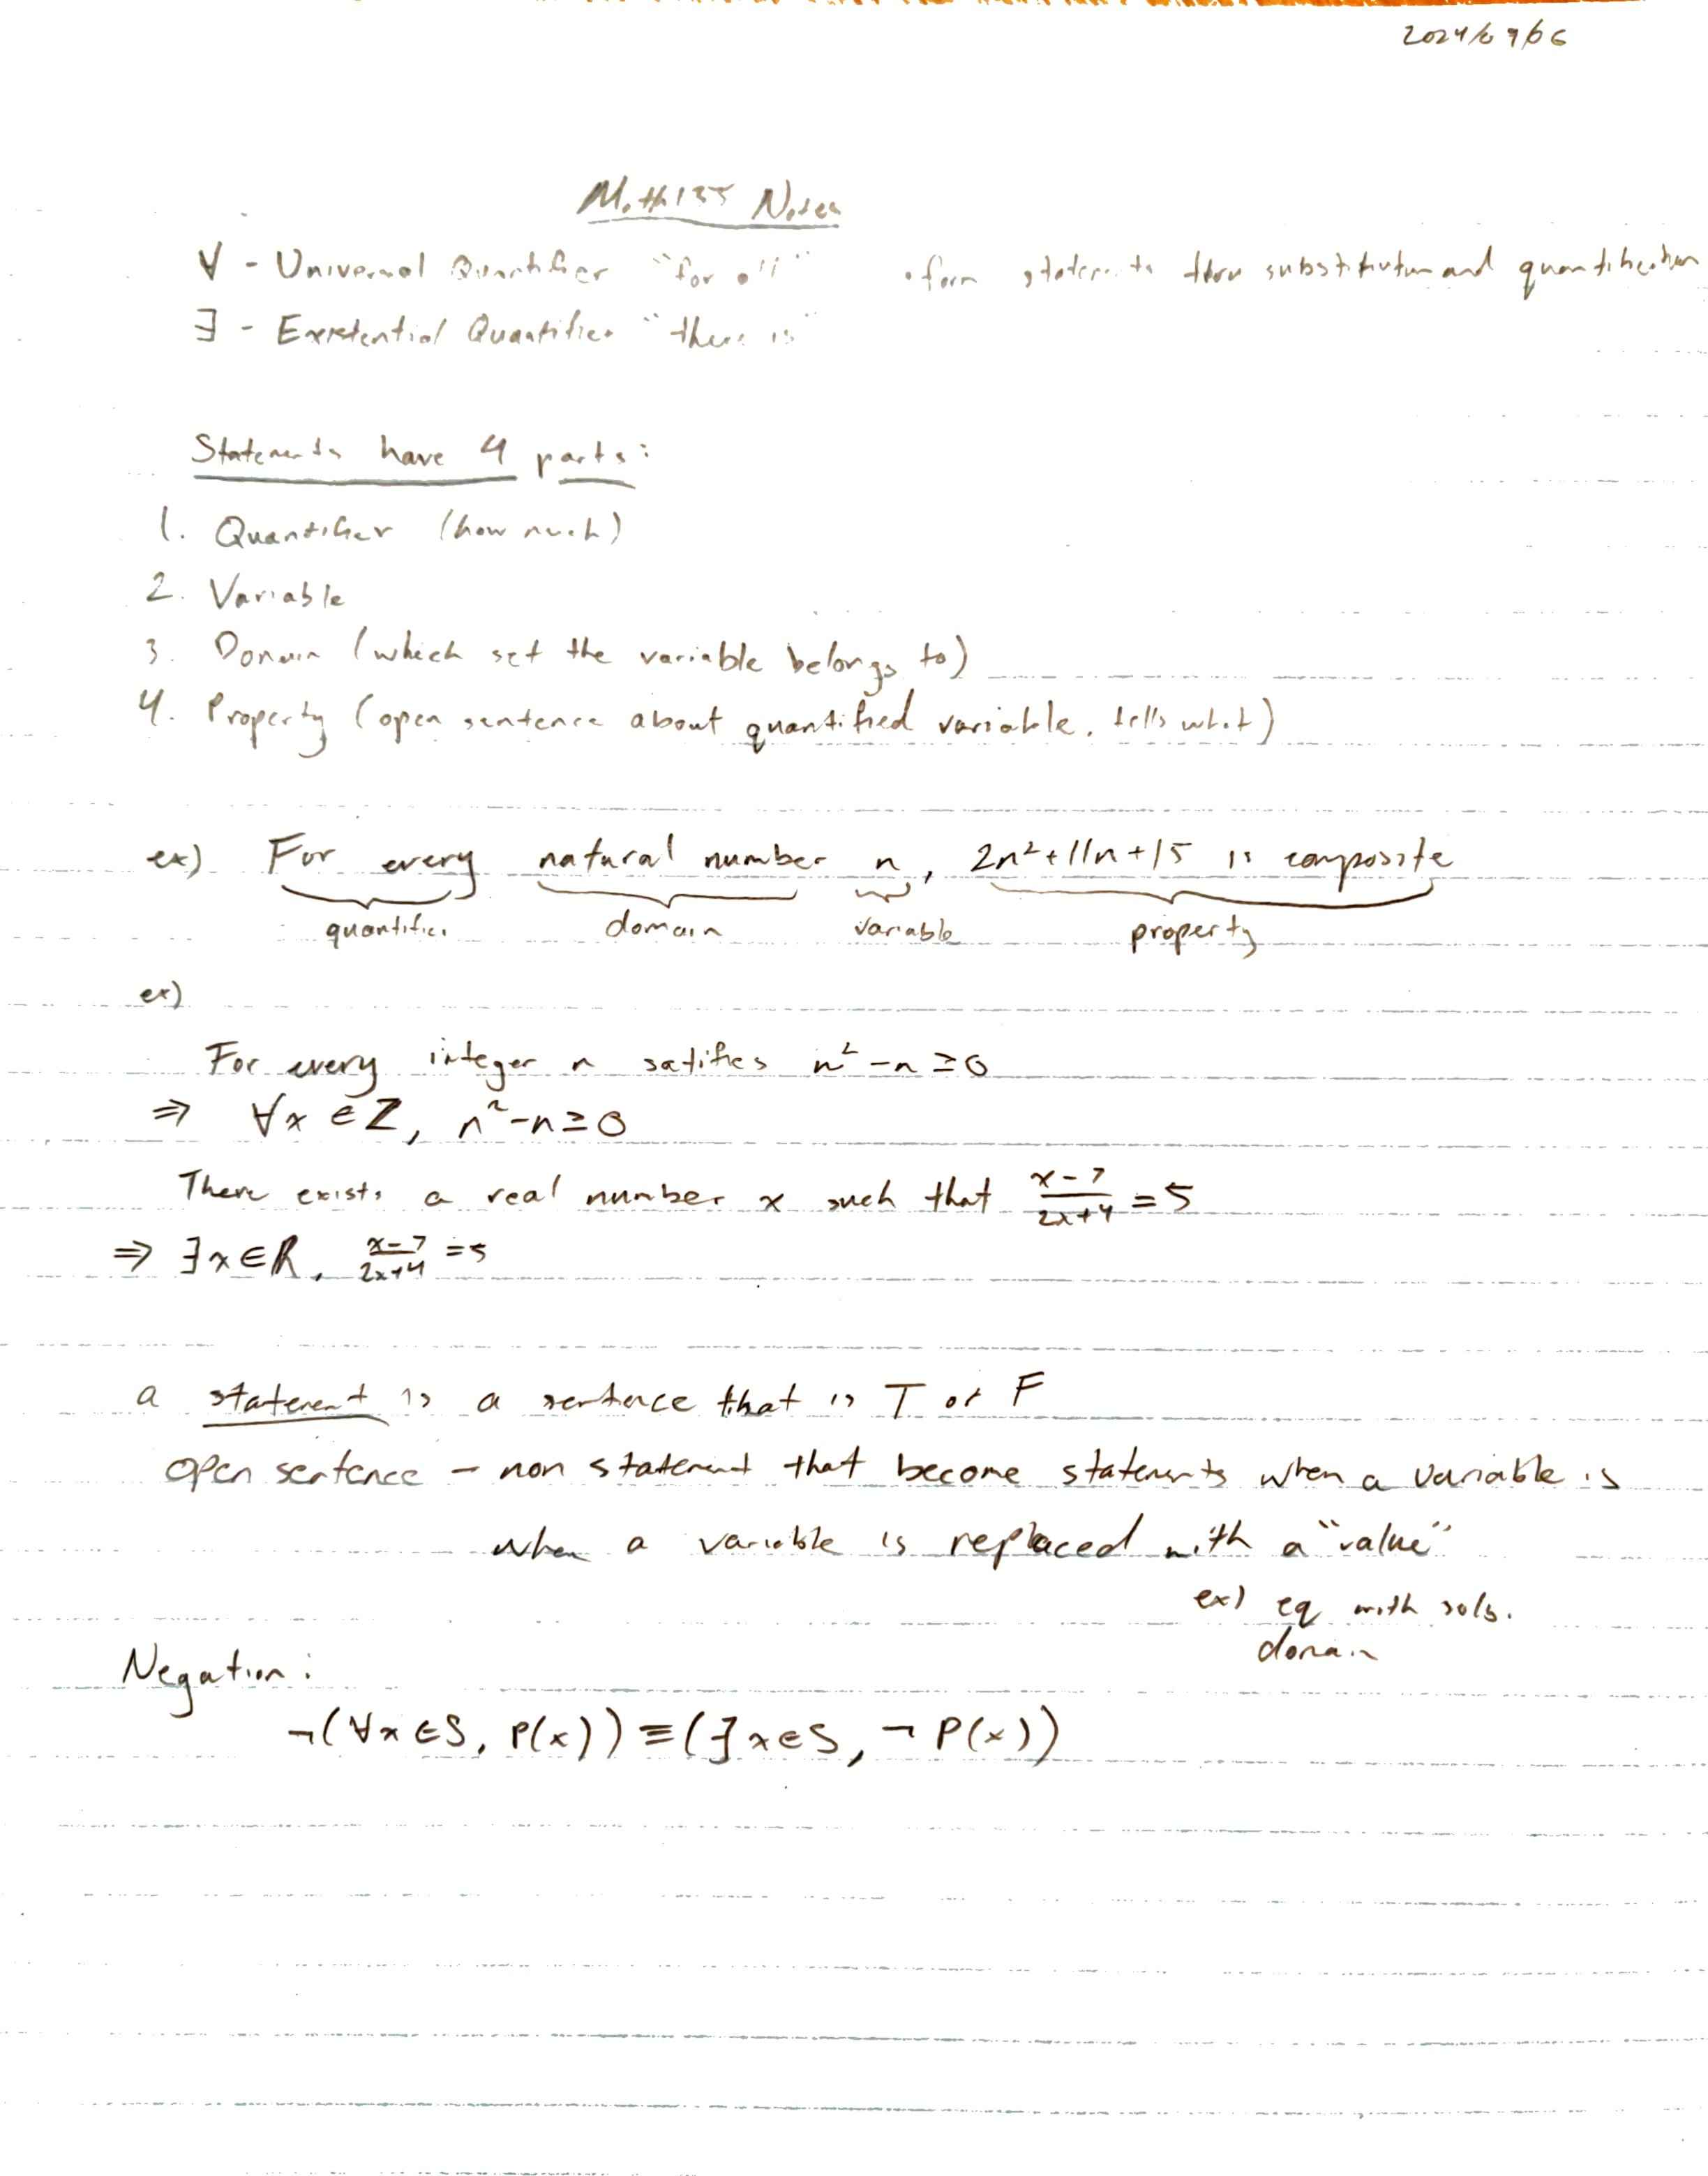 2024/09/06
Math135 Notes
∀ - Universal Quantifier "for all" • form statements thru substitution and quantification
∃ - Existential Quantifier "there is"
Statements have 4 parts:
1. Quantifier (how much)
2. Variable
3. Domain (which set the variable belongs to)
4. Property (open sentence about quantified variable, tells what)
ex) For every natural number n, 2n²+11n+15 is composite
quantifier domain variable property
ex)
For every integer n satifies n²-n≥0
⇒ ∀x∈Z, n²-n≥0
There exists a real number x such that (x-7)/(2x+4) = 5
⇒ ∃x∈R, (x-7)/(2x+4) = 5
a statement is a sentence that is T or F
open sentence - non statement that become statements when a variable is
when a variable is replaced with a "value"
ex) eq with sols.
domain
Negation:
¬(∀x∈S, P(x)) ≡ (∃x∈S, ¬P(x))